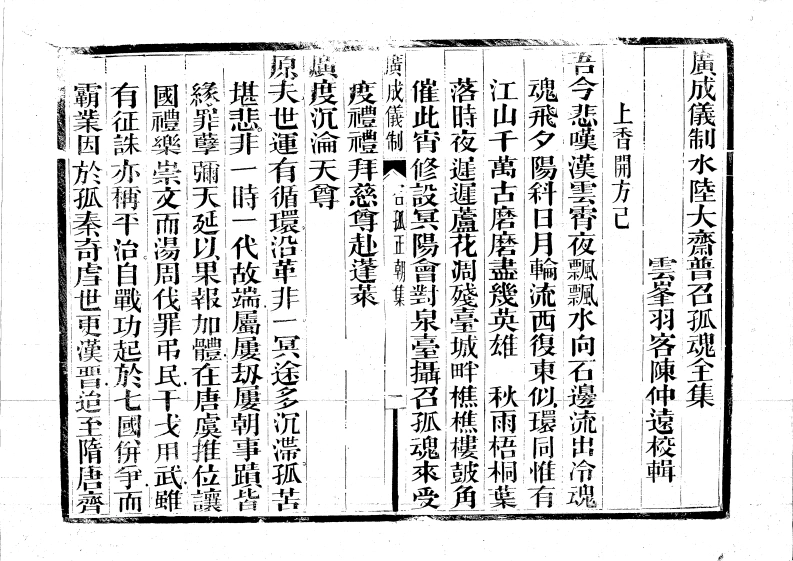 廣成儀制水陸大齋普召孤魂全集
雲峯羽客陳仲遠校輯
上香開方已
吾今悲嘆漢雲霄夜飄飄水向石邊流出冷魂
魂飛夕陽科日月輪流西復東似環同惟有
江山千萬古磨磨盡幾英雄　秋雨梧桐葉
落時夜遲遲蘆花凋殘臺城畔樵樵樓鼓角
催此宵修設冥陽會對泉臺攝召孤魂來受
度禮禮拜慈尊赴蓬萊
廣成儀制　召孤正朝集　一
廣度沉淪天尊
原夫世運有循環沿革非一冥途多沉滯孤苦
堪悲非一時一代故端屬屢刼屢朝事蹟皆
緣罪孽彌天延以果報加體在唐虞推位讓
國禮樂崇文而湯周伐罪弔民干戈用武雖
有征誅亦稱平治自戰功起於七國併爭而
霸業因於孤秦奇虐世更漢晉迨至隋唐齊